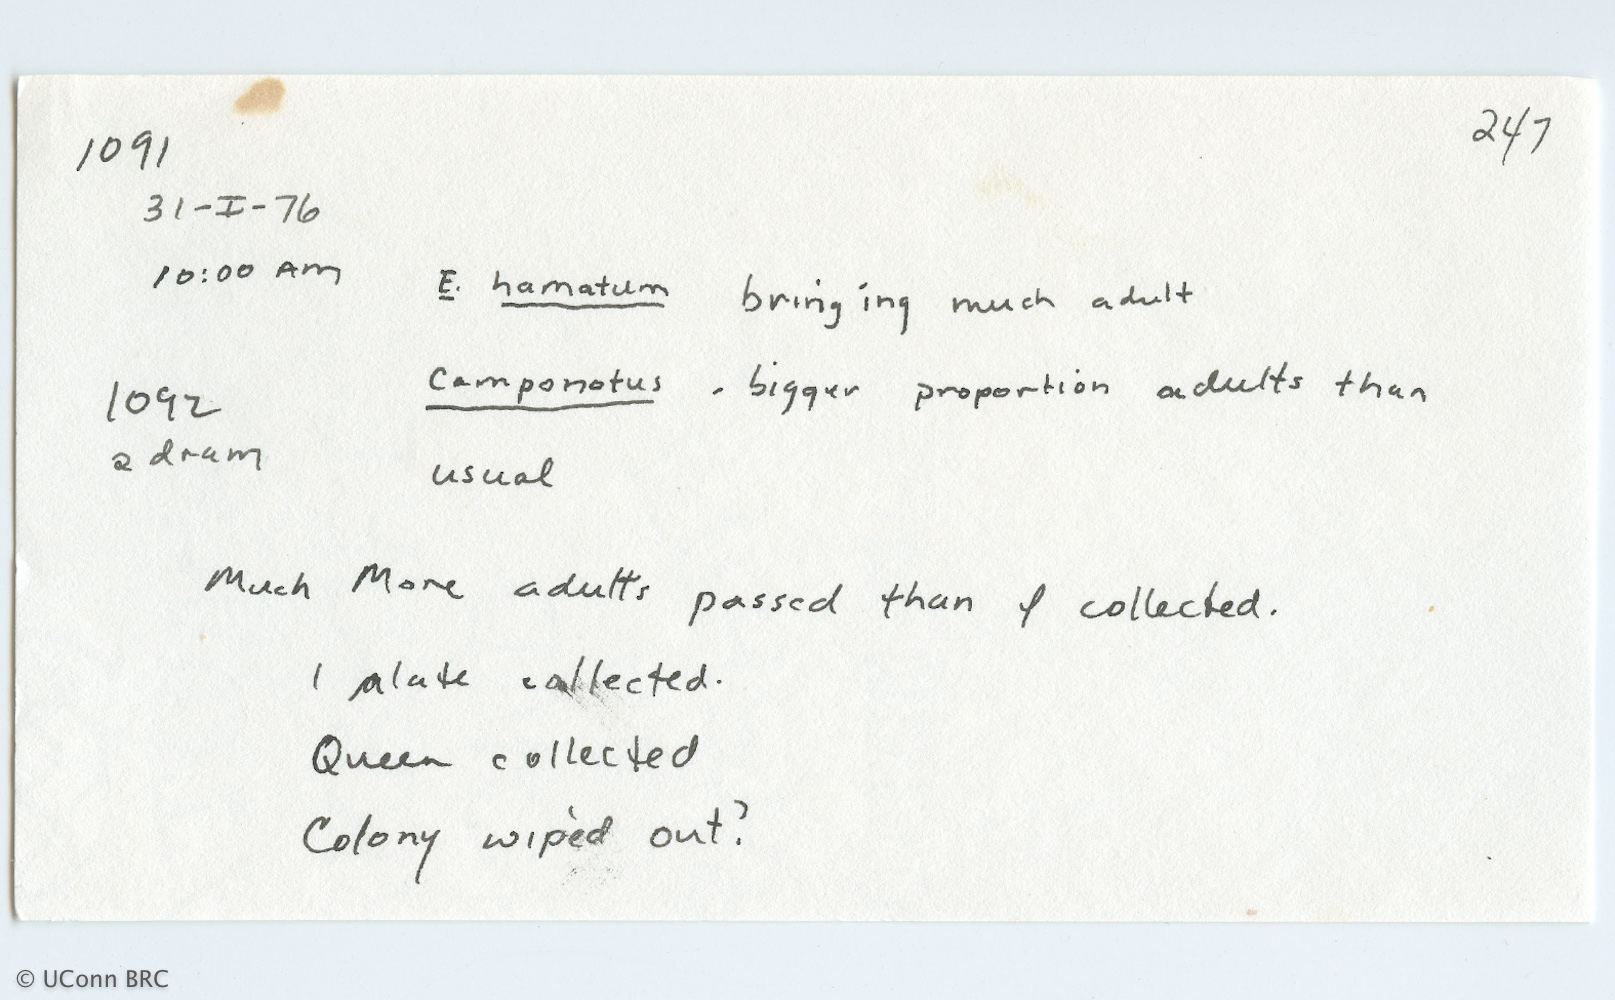 1091
247
31-I-76
10:00 AM
E. hamatum bringing much adult
Camponotus - bigger proportion adults than
1092
2 dram
usual
Much More adults passed than I collected.
1 alate collected.
Queen collected
Colony wiped out?
© UConn BRC